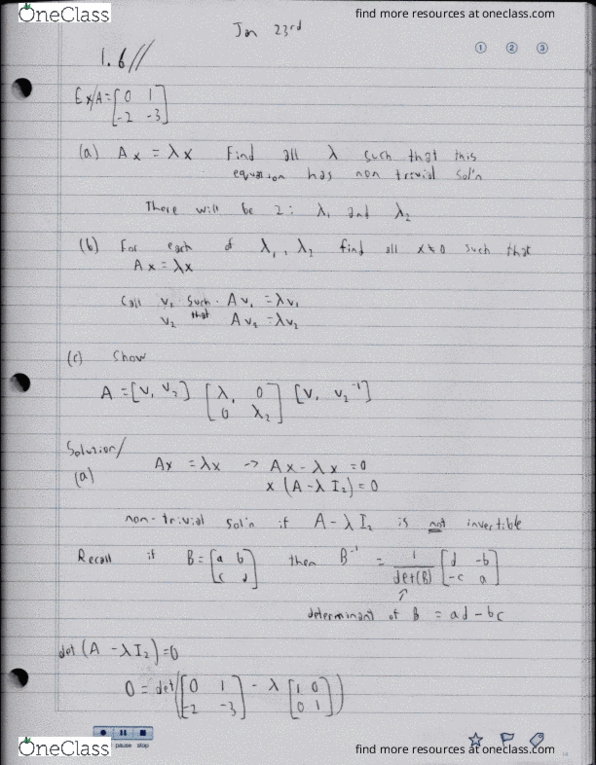 OneClass
find more resources at oneclass.com
Jan 23rd
1 2 3
1.6//
Ex/A=[0 1
-2 -3]
(a) Ax = λx Find all λ such that this
equation has non trivial sol'n
There will be 2: λ₁ and λ₂
(b) For each of λ₁, λ₂ find all x≠0 such that
Ax = λx
Call v₁ such Av₁ = λv₁
v₂ that Av₂ = λv₂
(c) Show
A = [v₁ v₂] [λ₁ 0
0 λ₂] [v₁ v₂⁻¹]
Solution/
(a) Ax = λx -> Ax - λx = 0
x (A - λI₂) = 0
non-trivial sol'n if A - λI₂ is not invertible
Recall if B = [a b
c d] then B⁻¹ = 1/det(B) [d -b
-c a]
determinant of B = ad - bc
det (A - λI₂) = 0
0 = det([0 1
-2 -3] - λ [1 0
0 1])
pause stop
OneClass
find more resources at oneclass.com